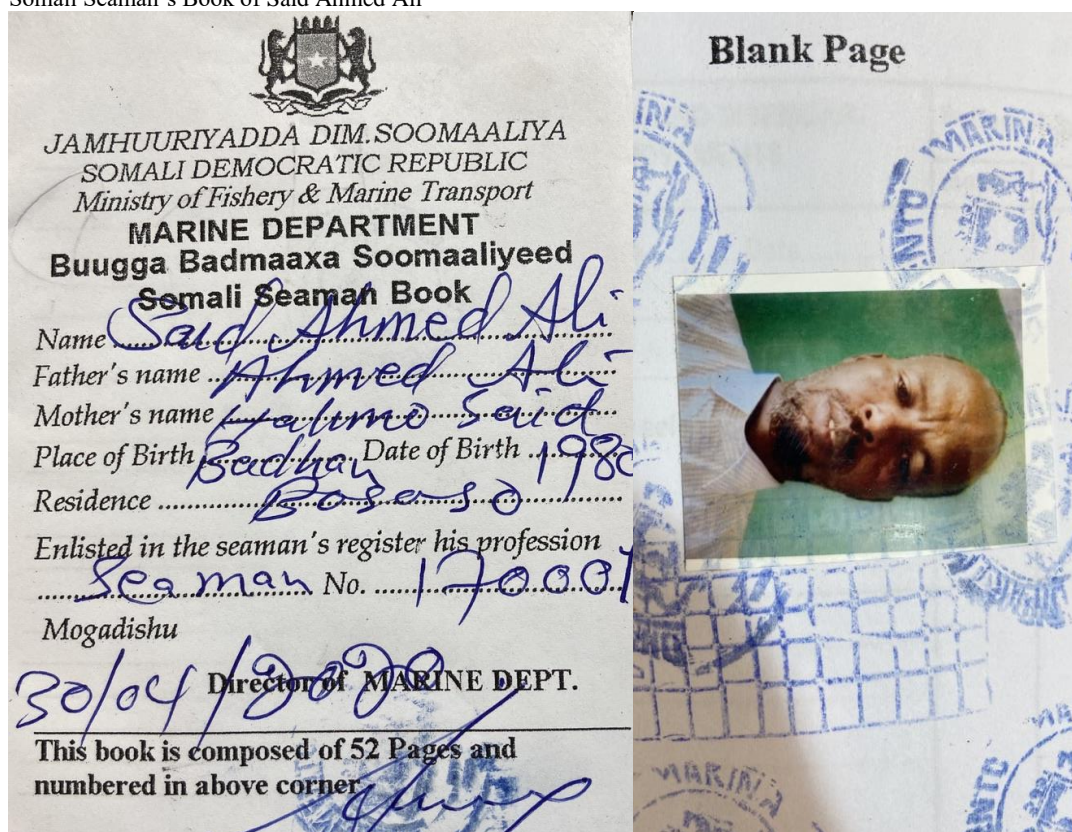 Somali Seaman's Book of Said Ahmed Ali
JAMHUURIYADDA DIM.SOOMAALIYA
SOMALI DEMOCRATIC REPUBLIC
Ministry of Fishery & Marine Transport
MARINE DEPARTMENT
Buugga Badmaaxa Soomaaliyeed
Somali Seaman Book
Name Said Ahmed Ali
Father's name Ahmed Ali
Mother's name Said
Place of Birth Badhan Date of Birth 1980
Residence Bosaso
Enlisted in the seaman's register his profession
Seaman No. 170001
Mogadishu
30/04/
Director of MARINE DEPT.
This book is composed of 52 Pages and
numbered in above corner
Blank Page
MARINA
MARINA